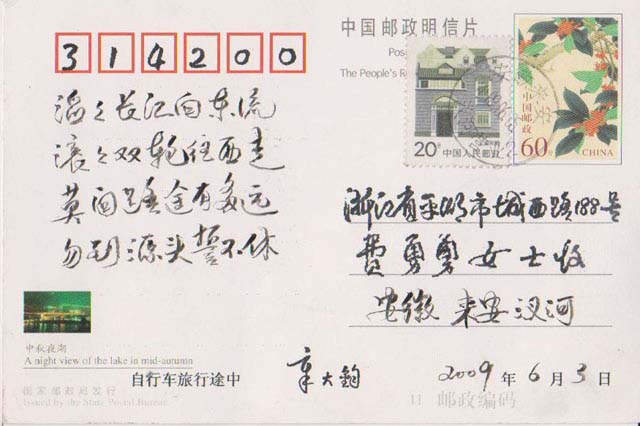 中国邮政明信片
314200
Pos
The People's R
滔々长江向东流
滚々双轮往西走
莫问路途有多远
勿到源头誓不休
20分 中国人民邮政
中国邮政
60分 CHINA
浙江省平湖市城西路188号
费勇勇女士收
安徽来安汊河
中秋夜湖
A night view of the lake in mid-autumn
自行车旅行途中 章大钧 2009年6月3日
国家邮政局发行
Issued by the State Postal Bureau
邮政编码